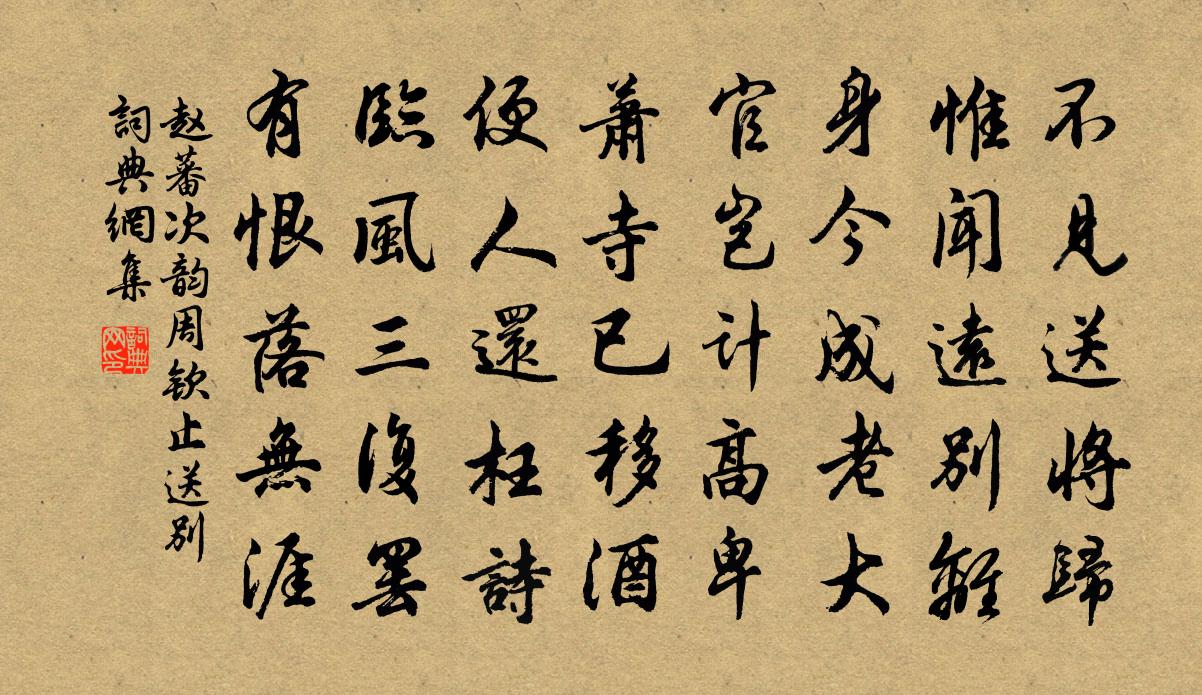 不見送將歸
惟聞遠別難
身今成老大
官豈計高卑
蕭寺已移酒
便人還枉詩
臨風三復罢
有恨落無涯
赵蕃次韵周钦止送别
詞典網集
詞典网印